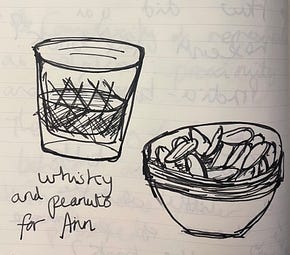 whisky
and peanuts
for Ann